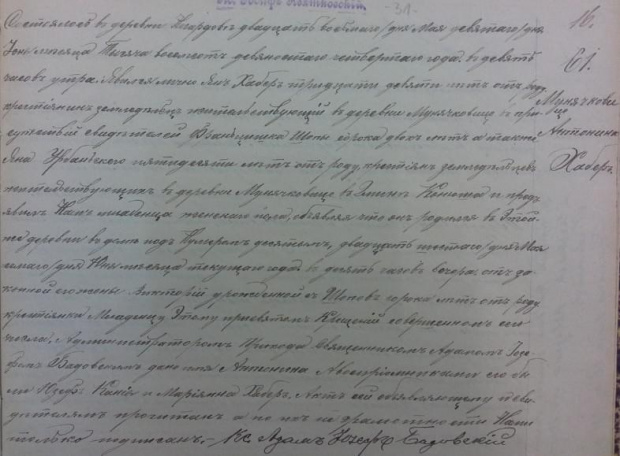 Состоялось въ деревнѣ двадцать восьмаго / дня Мая девятаго / дня
Іюня мѣсяца Тысяча восемсотъ девяностаго четвертаго года въ девять
часовъ утра. Явился лично Янъ Хаберъ тридцати девяти лѣтъ отъ роду
крестьянинъ земледѣлецъ жительствующій въ деревнѣ Мунячковице въ при
сутствіи свидѣтелей Францишка Шопы сорока двохъ лѣтъ а также
Яна Урбанскаго пятидесяти лѣтъ отъ роду, крестьянъ земледѣльцевъ
жительствующихъ въ деревнѣ Мунячковице въ и предъ
явилъ Намъ младенца женскаго пола, объявляя что онъ родился въ этой
же деревни въ домѣ подъ Нумеромъ десятымъ, двадцать шестаго / дня Мая
седьмаго / дня Іюня мѣсяца текущаго года въ десять часовъ вечера, отъ за
конной его жены Викторіи урожденной съ Шоповъ сорока лѣтъ отъ роду
крестьянки Младенцу Этому при святомъ Крещеніи совершенномъ его
числа, Администраторомъ Прихода Священникомъ Адамомъ Іозе
фомъ Бадовскимъ дано имя Антонина А Восприемниками его бы
ли Іозефъ Каня и Маріянна Хаберъ. Актъ сей объявляющему и сви
дѣтелямъ прочитанъ а по ихъ не грамотности Нами
только подписанъ. Кс. Адамъ Іозефъ Бадовскій
31.
16.
61.
Мунячкови
це
Антонина
Хаберъ